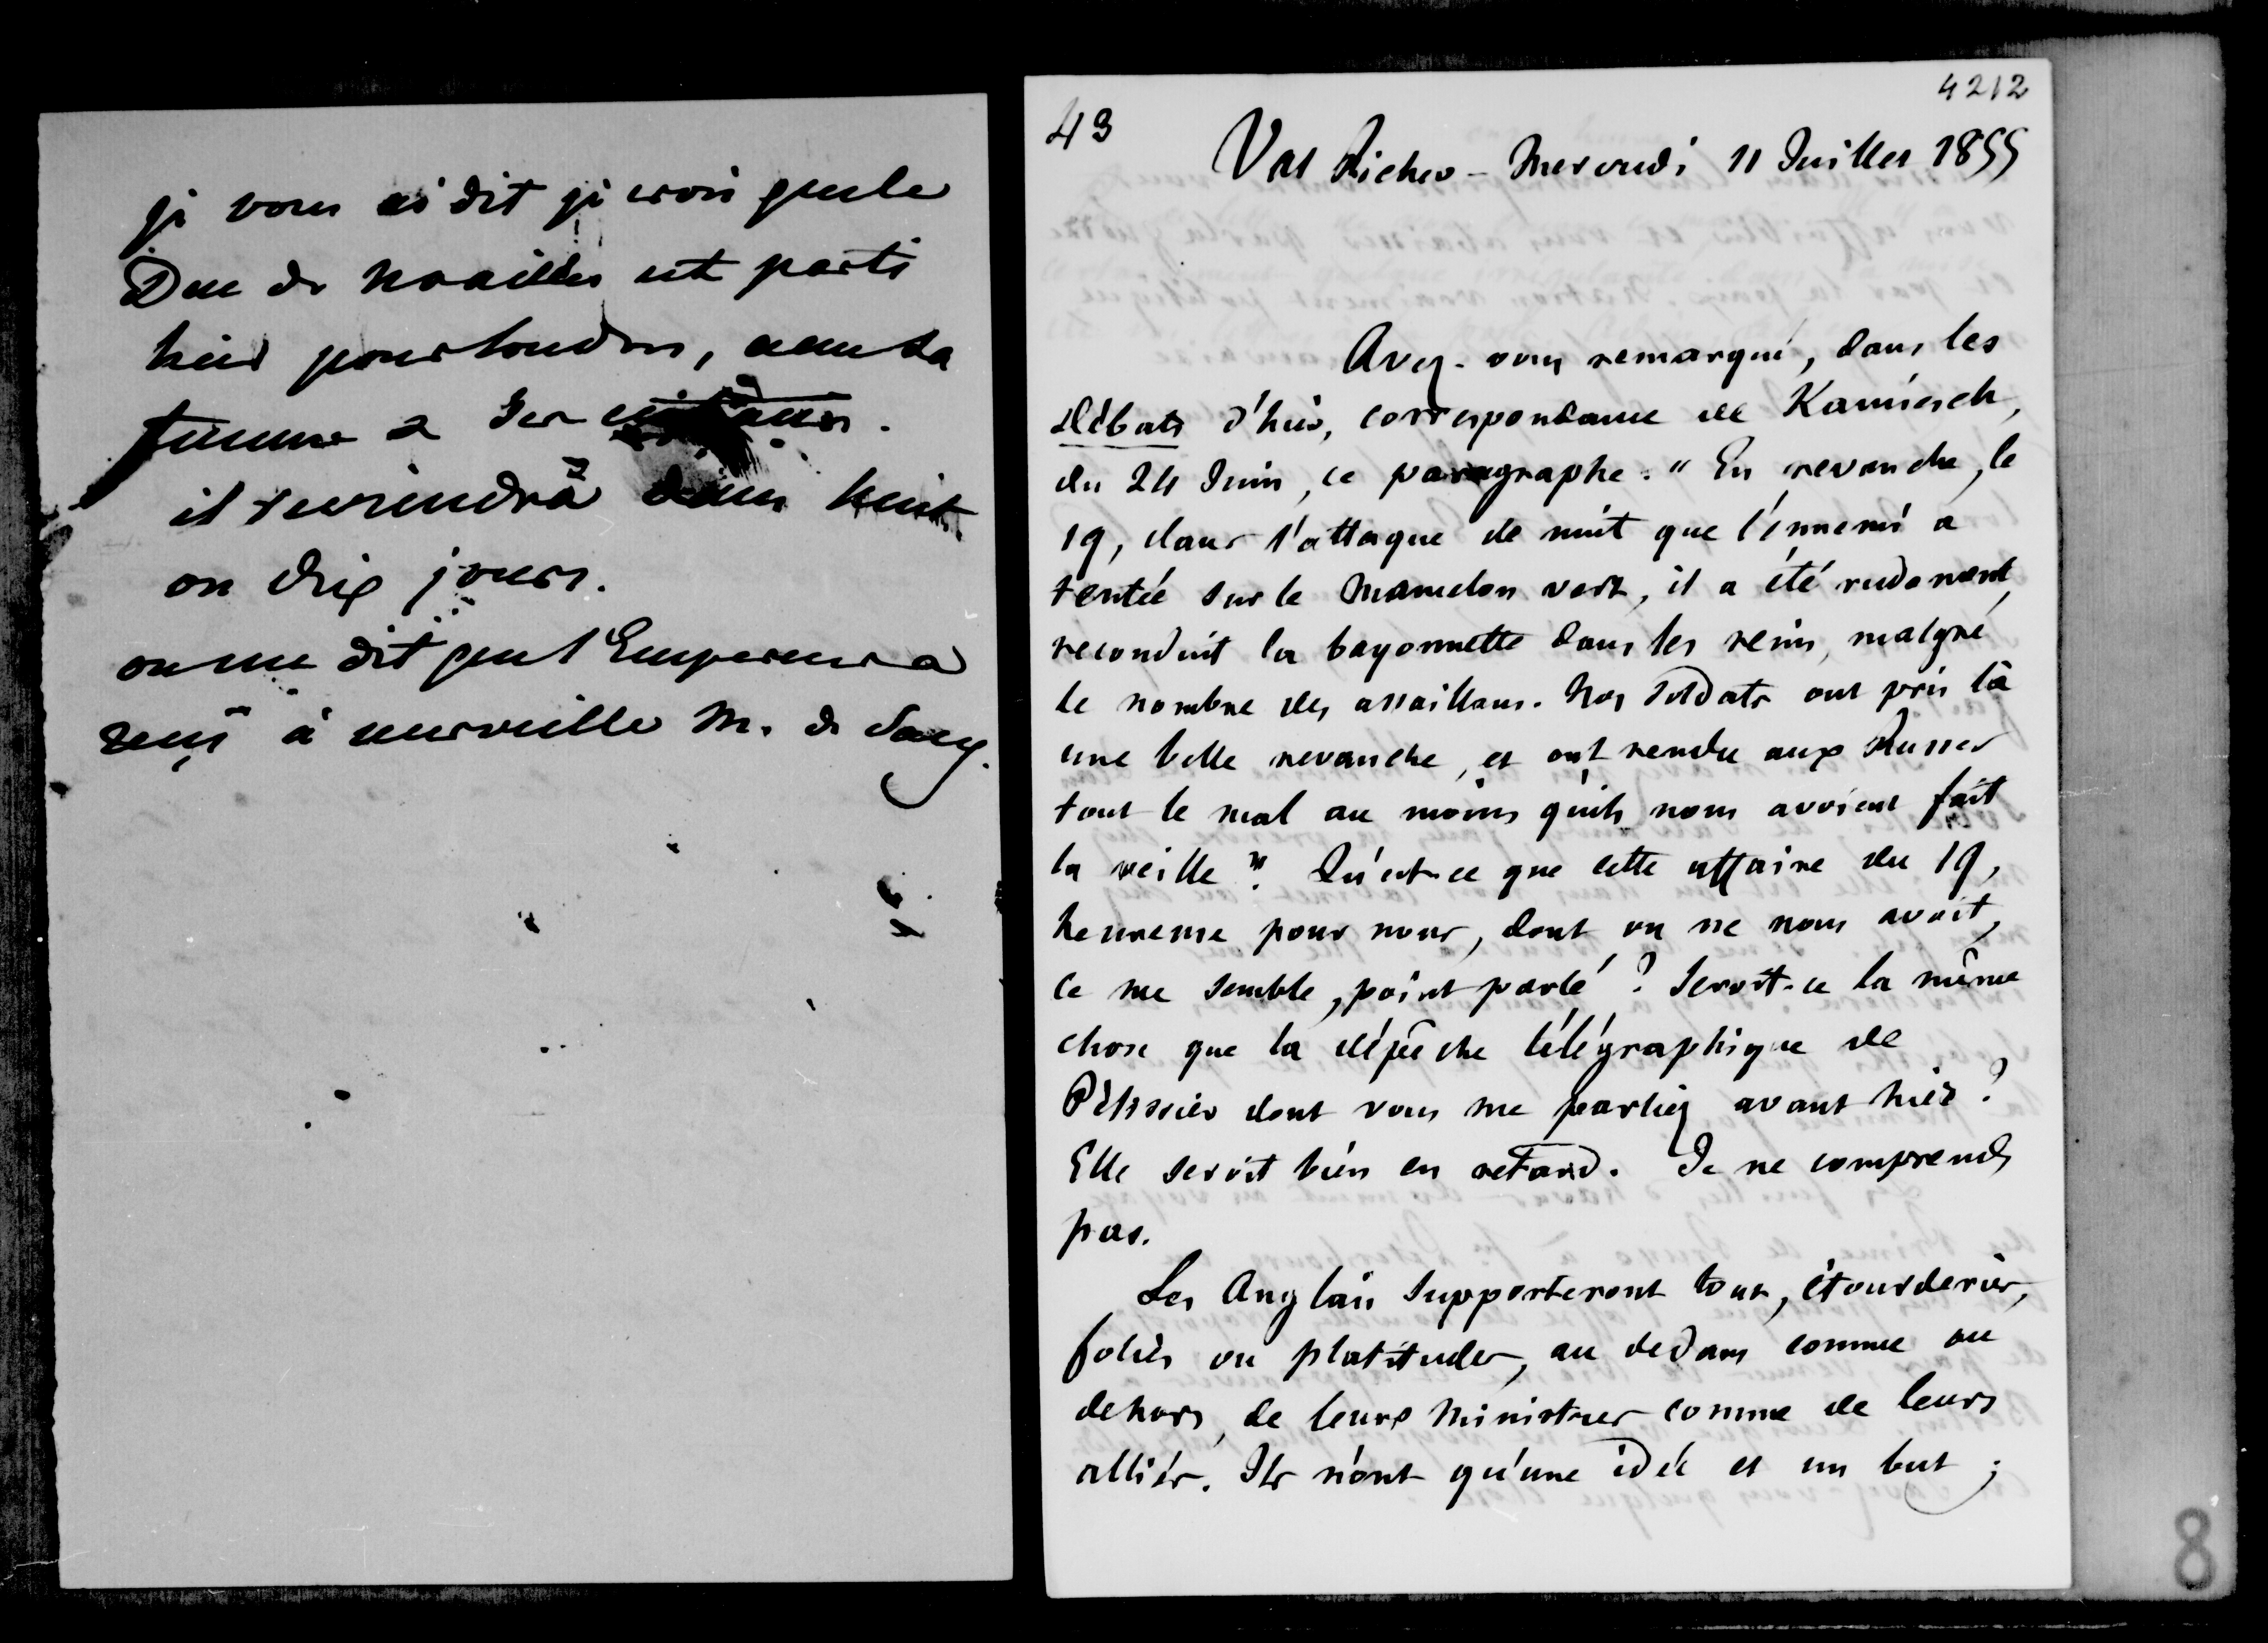 je vous ai dit je crois que le
Duc de Noailles est parti
hier pour Londres, avec sa
femme a ses
il reviendra dans huit
ou dix jours.
on me dit que l'Empereur a
reçu à merveille M. de Sacy.
4212
43
Val Richer - Mercredi 11 Juillet 1855
Avez-vous remarqué, dans les
Débats d'hier, correspondance de Kamiesch,
du 24 Juin, ce paragraphe : "En revanche, le
19, dans l'attaque de nuit que l'ennemi a
tentée sur le Mamelon vert, il a été rudement
reconduit la bayonnette dans les reins, malgré
le nombre des assaillans. Nos soldats ont pris là
une belle revanche, et ont rendu aux Russes
tout le mal au moins qu'ils nous avoient fait
la veille". Qu'est-ce que cette affaire du 19,
heureuse pour nous, dont on ne nous avoit,
ce me semble, point parlé ? Seroit-ce la même
chose que la dépêche télégraphique de
Pélissier dont vous me parliez avant hier ?
Elle seroit bien en retard. Je ne comprends
pas.
Les Anglais supporteront tout, étourderies,
folies ou platitudes, au dedans comme au
dehors, de leurs Ministres comme de leurs
alliés. Ils n'ont qu'une idée et un but ;
8